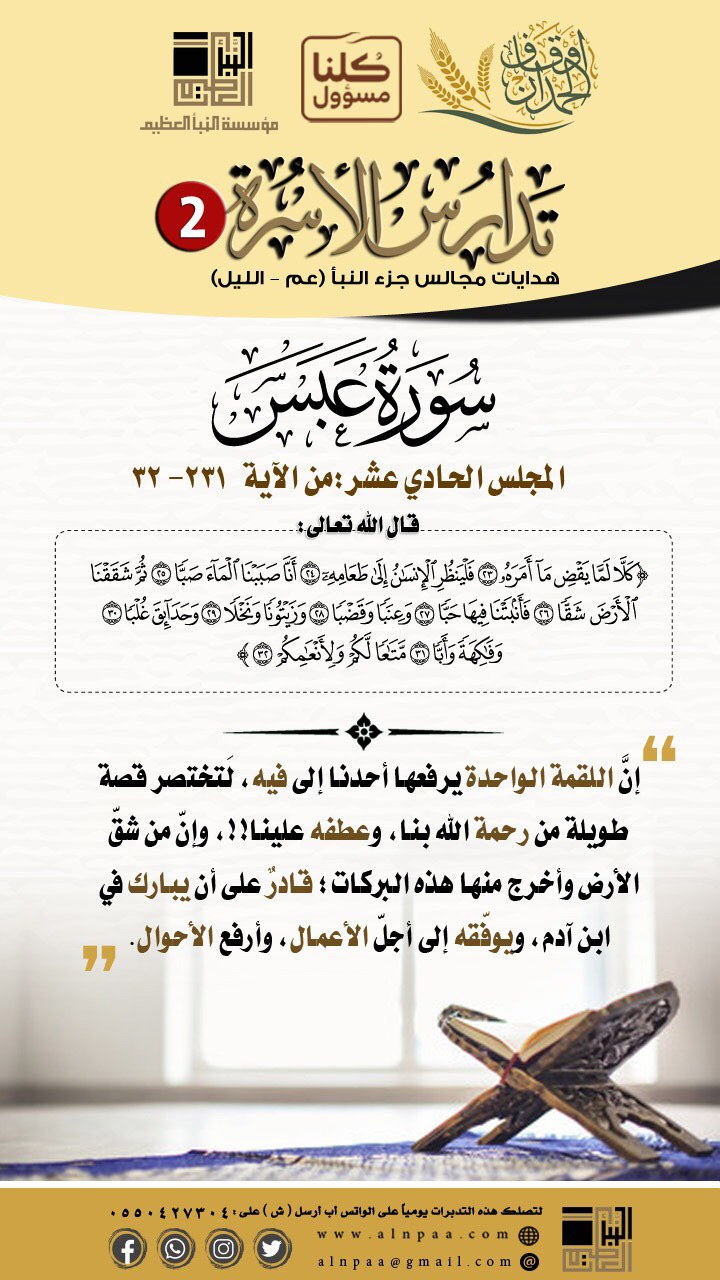 أوقاف الحمدان
كلنا
مسؤول
النبأ العظيم
مؤسسة النبأ العظيم
تَدَارُس الأُسْرَة
2
هدايات مجالس جزء النبأ (عم - الليل)
سُورَةُ عَبَسَ
المجلس الحادي عشر :من الآية ٢٣١- ٣٢
قال الله تعالى:
﴿ كَلَّا لَمَّا يَقْضِ مَآ أَمَرَهُۥ ۝٢٣ فَلْيَنظُرِ ٱلْإِنسَٰنُ إِلَىٰ طَعَامِهِۦٓ ۝٢٤ أَنَّا صَبَبْنَا ٱلْمَآءَ صَبًّا ۝٢٥ ثُمَّ شَقَقْنَا
ٱلْأَرْضَ شَقًّا ۝٢٦ فَأَنۢبَتْنَا فِيهَا حَبًّا ۝٢٧ وَعِنَبًا وَقَضْبًا ۝٢٨ وَزَيْتُونًا وَنَخْلًا ۝٢٩ وَحَدَآئِقَ غُلْبًا ۝٣٠
وَفَٰكِهَةً وَأَبًّا ۝٣١ مَّتَٰعًا لَّكُمْ وَلِأَنْعَٰمِكُمْ ۝٣٢ ﴾
“
إنَّ اللقمة الواحدة يرفعها أحدنا إلى فيه، لَتختصر قصة
طويلة من رحمة الله بنا، وعطفه علينا!!، وإنّ من شقّ
الأرض وأخرج منها هذه البركات؛ قادرٌ على أن يبارك في
ابن آدم، ويوفّقه إلى أجلّ الأعمال، وأرفع الأحوال.
”
لتصلك هذه التدبرات يومياً على الواتس أب أرسل ( ش ) على : ٠٥٥٠٤٢٧٣٠٤
www.alnpaa.com
alnpaa@gmail.com
النبأ العظيم